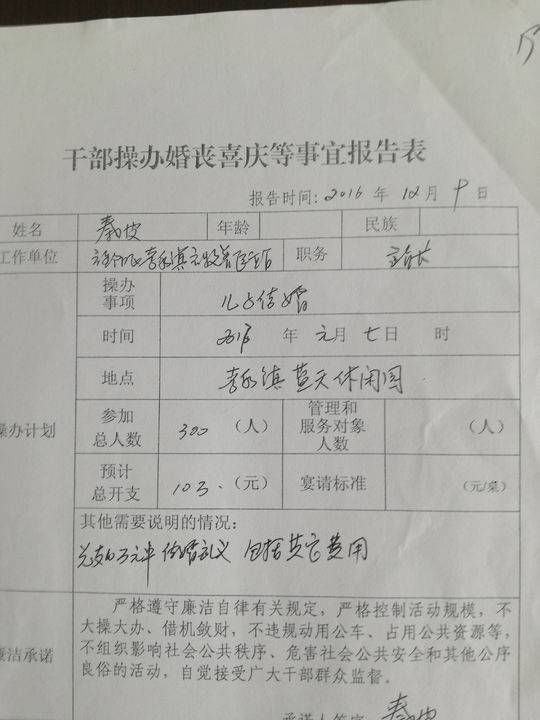 干部操办婚丧喜庆等事宜报告表
报告时间: 2016 年 12 月 日
姓名 秦 年龄 民族
工作单位 职务
操办
事项 儿子结婚
时间 年 元月 七日 时
地点 蓝天休闲园
操办计划
参加
总人数 300 (人) 管理和
服务对象
人数 (人)
预计
总开支 10万 (元) 宴请标准 (元/桌)
其他需要说明的情况:
包括其它费用
廉洁承诺
严格遵守廉洁自律有关规定，严格控制活动规模，不
大操大办、借机敛财，不违规动用公车、占用公共资源等，
不组织影响社会公共秩序、危害社会公共安全和其他公序
良俗的活动，自觉接受广大干部群众监督。
承诺人签字 秦